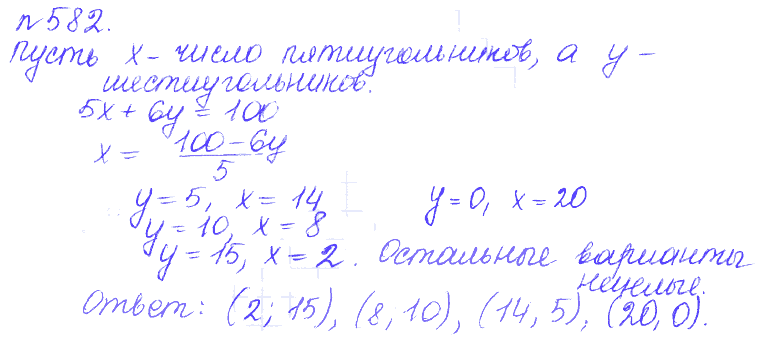 n 582.
Пусть x - число пятиугольников, а y -
шестиугольников.
5x + 6y = 100
x = (100 - 6y) / 5
y = 5, x = 14    y = 0, x = 20
y = 10, x = 8
y = 15, x = 2. Остальные варианты
нецелые.
Ответ: (2; 15), (8, 10), (14, 5), (20, 0).